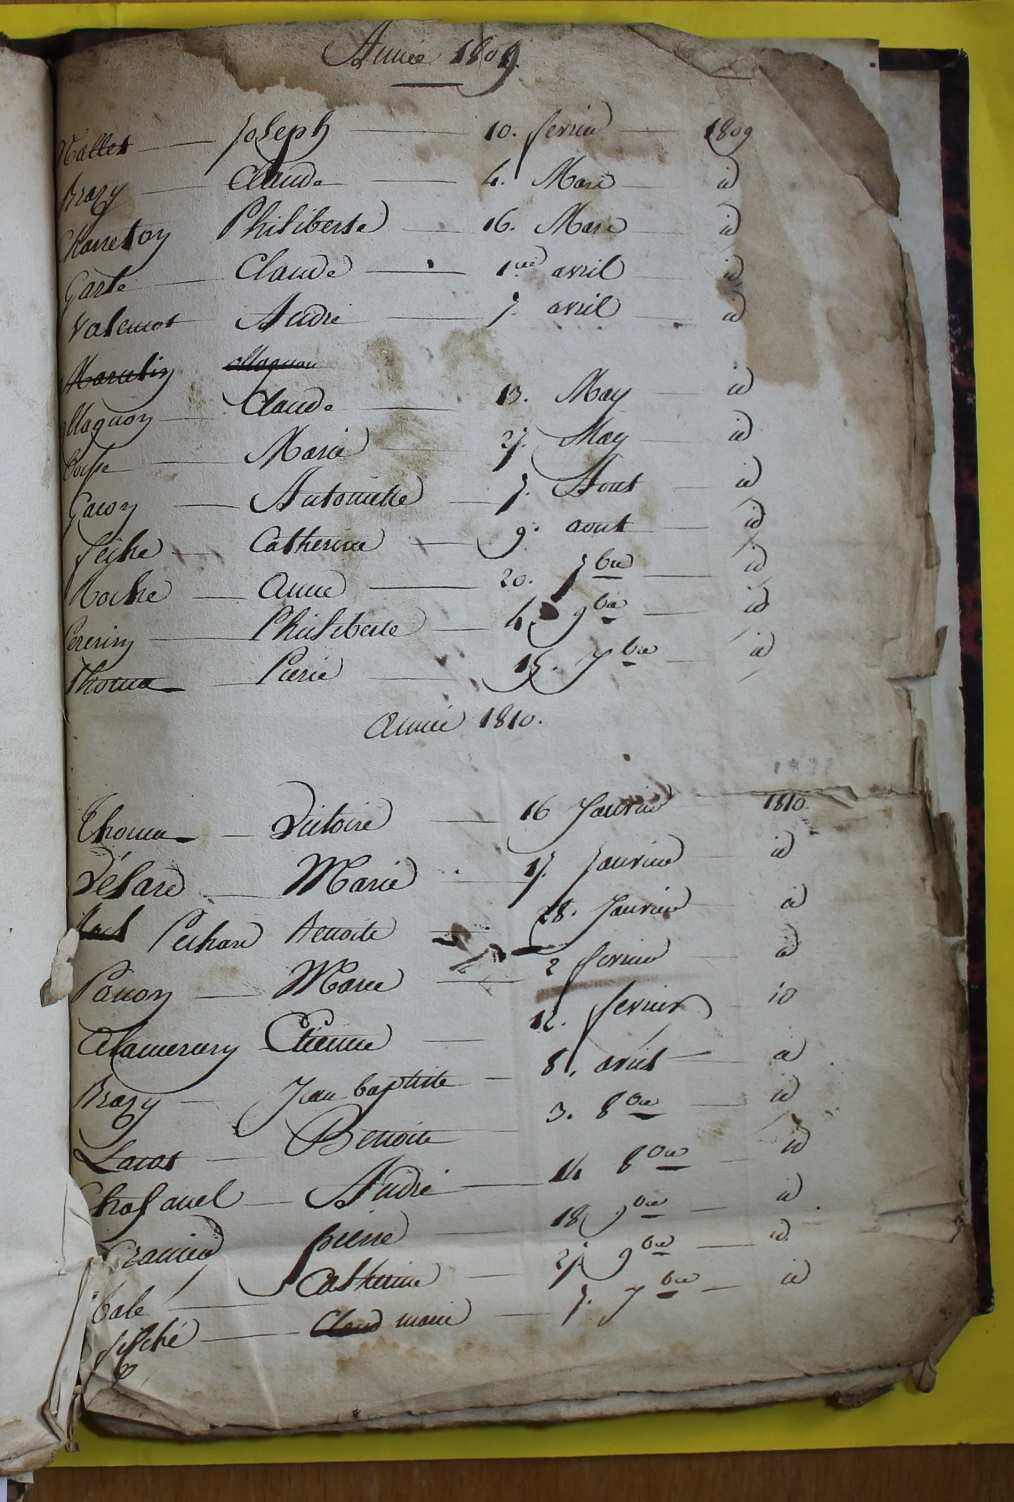 Année 1809.
Nallet Joseph 10. fevrier 1809
Brazy Claude 4. Mars id
Charreton Philiberte 16. Mars id
Garte Claude 1er avril id
Valemot Andre 7. avril id
Marcelin Magnon
Magnon Claude 13. May id
Marie 27. May id
Gacon Antoinette 7. Aout id
Feiche Catherine 9. aout id
Roche Anne 20. 7bre id
Pererin Philiberte 4 9bre id
Thoma Pierre 15. 7bre id
Année 1810.
Thoma Victoire 16 Janvier 1810.
Délard Marie 17. Janvier id
Pechard Benoite 28. Janvier id
Panon Marie 2 fevrier id
Alamercery Etienne 12. fevrier id
Brazy Jean baptiste 8, avril id
Lacot Benoite 3. 8bre id
Chasanel Andre 14 8bre id
pierre 18 9bre id
Bale Catherine 27 9bre id
Claud marie 7. 7bre id